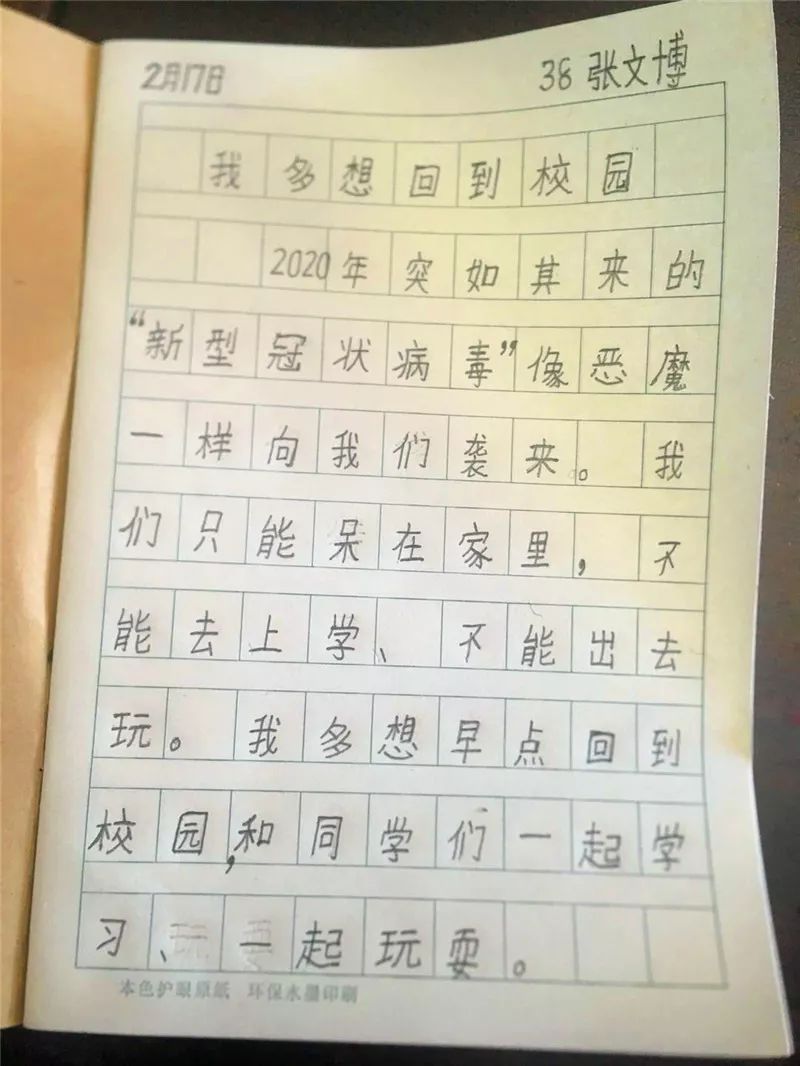 2月17日 38 张文博
我多想回到校园
2020年突如其来的
“新型冠状病毒”像恶魔
一样向我们袭来。我
们只能呆在家里，不
能去上学、不能出去
玩。我多想早点回到
校园，和同学们一起学
习、一起玩耍。
本色护眼原纸 环保水墨印刷